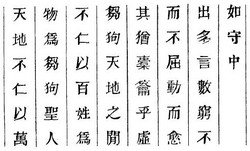 天地不仁以萬
物爲芻狗聖人
不仁以百姓爲
芻狗天地之閒
其猶橐籥乎虛
而不屈動而愈
出多言數窮不
如守中